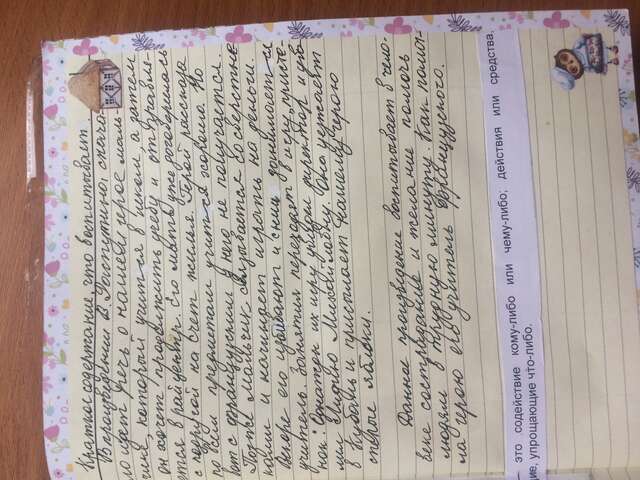 Краткое содержание, что воспитывает.
В произведении В. Распутина, снача-
ло идет речь о нашем герое маль-
чике, который учится в школе, а затем
он хочет продолжить учебу и отправля-
ется в райцентр. Его мать уже договорилась
с подругой на счет жилья. Герой рассказа
по всем предметам учится хорошо. Но
вот с французским у него не получается.
Позже мальчик связывается со сверстни-
ками и начинает играть на деньги.
Вскоре его избивают и с ним занимается
учитель. Занятия переходят в игру "присте-
нок". Однажды их игру увидел директор и
Лидию Михайловну. Она уезжает
в Кубань и присылает нашему герою
спелые яблоки.
Данное произведение воспитывает в чело-
веке сострадание и желание помочь
людям в трудную минуту. Как помог-
ла герою его учитель французского.
– это содействие кому-либо или чему-либо; действия или средства,
щие, упрощающие что-либо.